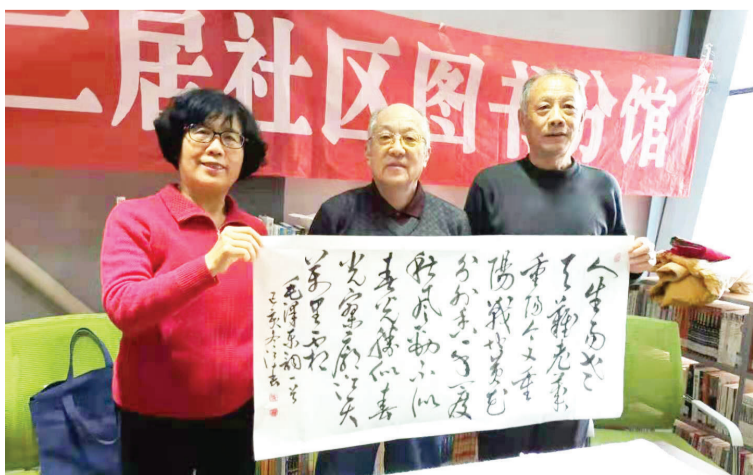 二居社区图书分馆
人生易老
天難老
重陽今又重
陽戰地黄花
分外香一年一度
秋风劲不似
春光勝似春
光寥廓江天
萬里霜
毛澤東詞一首
己亥冬